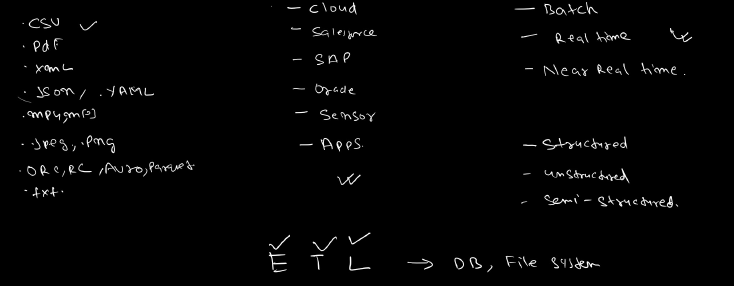 .CSV
.Pdf
.xml
.JSON, .YAML
.mp4, mp3
.Jpeg, .Png
.ORC, RC, Avro, Parquet
.txt.
- Cloud
- Salesforce
- SAP
- Oracle
- Sensor
- APPS.
- Batch
- Real time
- Near Real time.
- Structured
- unstructured
- Semi-Structured.
E T L → DB, File System